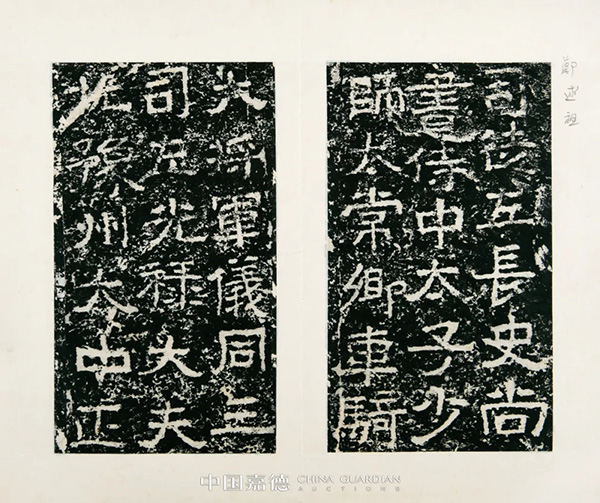 鄭述祖
司徒左長史尚
書侍中太子少
師太常卿車騎
大將軍儀同三
司光祿大夫
北豫州大中正
中国嘉德 CHINA GUARDIAN
AUCTIONS